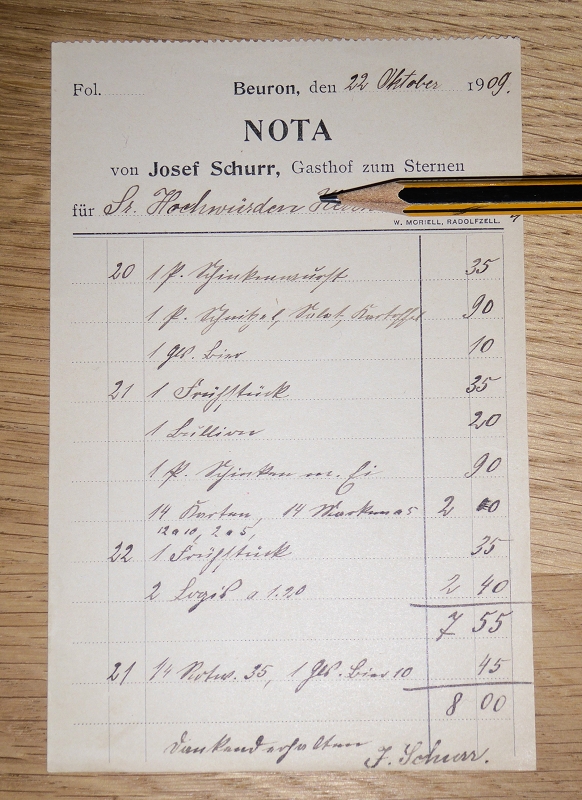 Fol. Beuron, den 22 Oktober 1909.
NOTA
von Josef Schurr, Gasthof zum Sternen
für Sr. Hochwürden
W. MORIELL, RADOLFZELL.
20 1 P. Schinkenwurst 35
1 P. Schnitzel, Salat, Kartoffel 90
1 Gls. Bier 10
21 1 Frühstück 35
1 Bullion 20
1 P. Schinken m. Ei 90
14 Karten, 14 Marken a 5 2
12 a 10, 2 a 5,
22 1 Frühstück 35
2 Logis a 1.20 2 40
7 55
21 1/4 Rotw. 35, 1 Gls. Bier 10 45
8 00
Dankend erhalten J. Schurr.